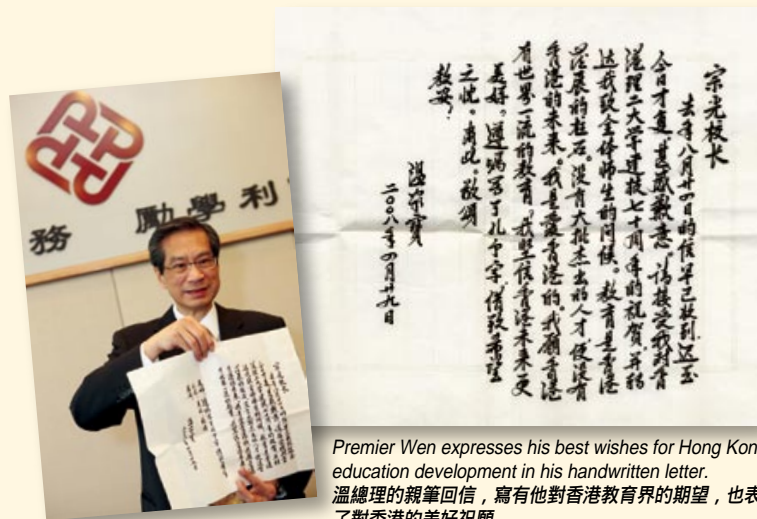 務 勵 學 利
宗光校长
去年八月廿四日的信早已收到,迟至
今日才复,甚感歉意。请接受我对香
港理工大学建校七十周年的祝贺,并转
达我致全体师生的问候。教育是香港
发展的柱石。没有大批杰出的人才,便没有
香港的未来。我是爱香港的。我愿香港
有世界一流的教育,我坚信香港未来更
美好。遵嘱写了几个字,借致希望
之忱。专此,敬颂
教安!
温家宝
二〇〇八年四月廿九日
Premier Wen expresses his best wishes for Hong Kon
education development in his handwritten letter.
溫總理的親筆回信,寫有他對香港教育界的期望,也表
了對香港的美好祝願